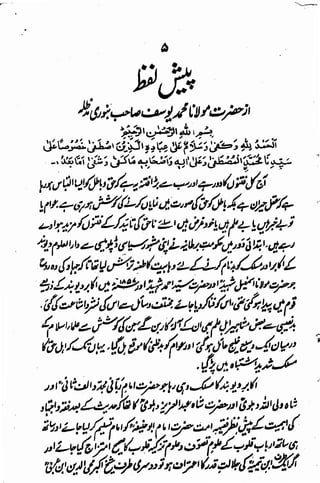 ۵
پیش لفظ
از حضرت مولانا محمد یوسف صاحب بنوری مدظلہ
بِسْمِ اللّٰهِ الرَّحْمٰنِ الرَّحِيْمِ
اَلْحَمْدُ لِلّٰهِ وَكَفٰى وَسَلَامٌ عَلٰى عِبَادِهِ الَّذِيْنَ اصْطَفٰى خُصُوْصًا عَلٰى
سَيِّدِنَا مُحَمَّدٍ الْمُصْطَفٰى وَعَلٰى اٰلِهٖ وَاَصْحَابِهٖ مَا كَفٰى وَشَفٰى اَمَّا بَعْدُ :۔
آج کل فتنوں کا دور ہے اور سب سے بڑا فتنہ یہ ہے کہ حق و باطل کا ایسا التباس ہو رہا
ہے کہ عقل حیران ہے بلکہ باطل کو حق کی صورت میں نمایاں کرنے کی کوشش ہو رہی ہے، عوام یا
تو بے خبر ہیں یا بے علم ہیں یا خود غرض ہیں اس لئے ناحق کی تائید کر کے فتنوں کو مزید ہوا دے
رہے ہیں، ابتدائی دور میں حکومت برطانیہ نے اپنی مشہور سیاسی ڈپلومیسی سے دار العلوم دیوبند
کے اکابر اور مسلک کو بدنام کرنے کے لئے وہابیت کا طعنہ تراش لیا تھا تا کہ جہاد کی وہ روح
جو حضرت مولانا اسمٰعیل شہیدؒ اور حضرت سید احمد شہیدؒ اور میں اکابر دیوبند کے ذریعے
قوم میں پیدا ہو گئی تھی، اس کو فنا کر دیا جائے، مختلف وسائل سے اس کی نشر و اشاعت کی گئی،
بدقسمتی سے بعض مشاہیر اہل علم بھی ان کے آلۂ کار بن گئے جن کی کوشش سے علماء اسلام کے
درمیان ایک وسیع خلیج حائل ہو گئی اور عوام کو بدظنی کا موقع مل گیا۔ یہاں تک کہ اہل حق کا
مسلک شدید اشتباہ میں پڑ گیا۔
اکابر دیوبند کا مسلک وہی رہا جو حضرت امام ربانی مجدد الف ثانیؒ اور
شاہ ولی اللہ دہلویؒ اور حضرت شاہ عبد العزیز دہلویؒ کا تھا کہ حدیث کے بعد فقہ و اجتہاد
کی اہمیت کے پیش نظر فقیہ امت حضرت امام ابو حنیفہؒ کو امام تسلیم کر لیا جائے اور ساتھ
ہی ساتھ ارباب قلوب کے علوم تصوف و علوم تزکیہ قلوب کا صحیح امتزاج کیا جائے اور
اگر ایک طرف ابن تیمیہؒ کی جلالتِ قدر کا اعتراف ہو تو دوسری طرف شیخ اکبر محی الدین ابن عربیؒ